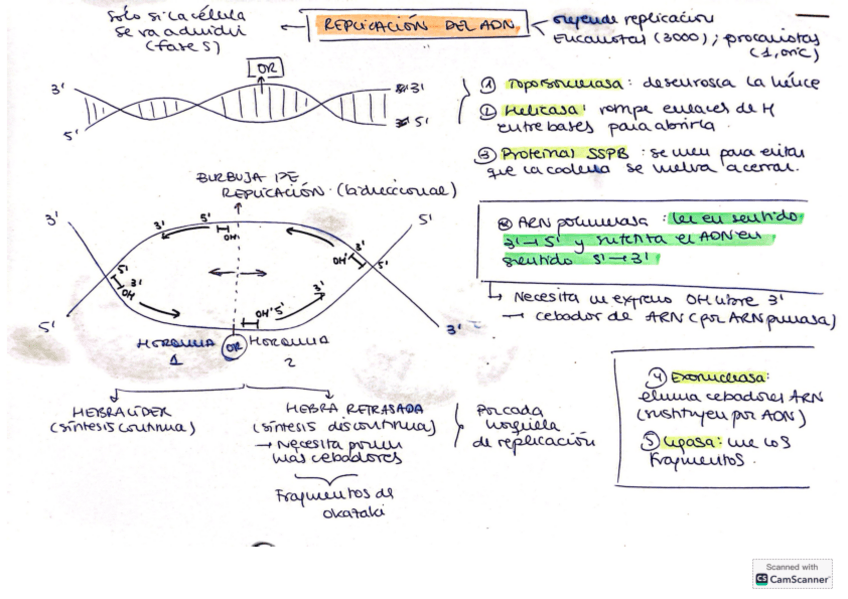 Sólo si la célula
se va a dividir
(fase S)
REPLICACIÓN DEL ADN
origen de replicación
Eucariotas (3000); procariotas
(1, oriC)
OR
3'
3'
5'
5'
① Topoisomerasa: desenrosca la hélice
② Helicasa: rompe enlaces de H
entre bases para abrirla.
③ Proteínas SSPB: se unen para evitar
que la cadena se vuelva a cerrar.
BURBUJA DE
REPLICACIÓN (bidireccional)
3'
5'
3'
5'
OH
3'
OH'
5'
5'
3'
OH
OH'
5'
3'
5'
3'
HORQUILLA
1
OR
HORQUILLA
2
ARN polimerasa: lee en sentido
3'→5' y sintetiza el ADN en
sentido 5'→3'
↳ Necesita un extremo OH libre 3'
→ cebador de ARN (por ARN primasa)
HEBRA LÍDER
(síntesis continua)
HEBRA RETRASADA
(síntesis discontinua)
→ Necesita poner
más cebadores
Fragmentos de
Okazaki
Por cada
horquilla
de replicación
④ Exonucleasa:
elimina cebadores ARN
(sustituyen por ADN)
⑤ Ligasa: une los
fragmentos.
Scanned with
CS CamScanner